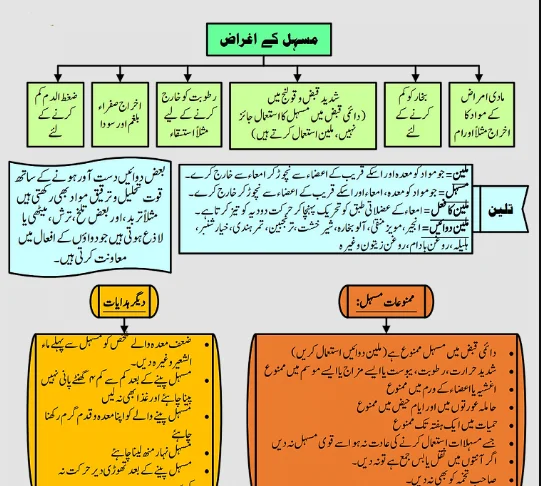 مسہل کے اغراض
مادی امراض
کے مواد کا
اخراج مثلاً اورام
بخار کو کم
کرنے کے
لئے
شدید قبض و قولنج میں
(دائمی قبض میں مسہل کا استعمال جائز
نہیں، ملین استعمال کرتے ہیں)
رطوبت کو خارج
کرنے کے لیے
مثلاً استسقاء
اخراج صفراء
بلغم اور سودا
ضغط الدم کم
کرنے کے
لئے
تلین
ملین= جو مواد کو معدہ اور اسکے قریب کے اعضاء سے نچوڑ کر امعاء سے خارج کرے۔
مسہل= جو مواد کو معدہ، امعاء اور اسکے قریب کے اعضاء سے نچوڑ کر خارج کرے۔
ملین کا فعل= امعاء کے عضلاتی طبق کو تحریک پہنچا کر حرکت دودیہ کو تیز کرتا ہے۔
ملین دوائیں= انجیر، مویز منقی، آلو بخارہ، شیر خشت، ترنجبین، تمر ہندی، خیار شنبر،
ہلیلہ، روغن بادام، روغن زیتون وغیرہ
بعض دوائیں دست آور ہونے کے ساتھ
قوت تحلیل و ترقیق مواد بھی رکھتی ہیں
مثلاً تربد، اور بعض تلخ، ترش، میٹھی یا
لاذع ہوتی ہیں جو دواؤں کے افعال میں
معاونت کرتی ہیں۔
ممنوعات مسہل:
• دائمی قبض میں مسہل ممنوع ہے (ملین دوائیں استعمال کریں)
• شدید حرارت، رطوبت، یبوست یا ایسے مزاج یا ایسے موسم میں ممنوع
• اغشیہ یا اعضاء کے ورم میں ممنوع
• حاملہ عورتوں میں اور ایام حیض میں ممنوع
• حمیات میں ایک ہفتہ تک ممنوع
• جسے مسہلات استعمال کرنے کی عادت نہ ہو اسے قوی مسہل نہ دیں
• اگر آنتوں میں ثفل یابس جمع ہے تو نہ دیں۔
• صاحب تخمہ کو بھی نہ دیں۔
دیگر ہدایات
• ضعف معدہ والے شخص کو مسہل سے پہلے ماء
الشعیر وغیرہ دیں۔
• مسہل پینے کے بعد کم سے کم ۴ گھنٹے پانی نہیں
پینا چاہئے اور غذا بھی نہ لیں
• مسہل پینے والے کو اپنا معدہ و قدم گرم رکھنا
چاہئے
• مسہل نہار منھ لینا چاہئے
• مسہل پینے کے بعد تھوڑی دیر حرکت نہ